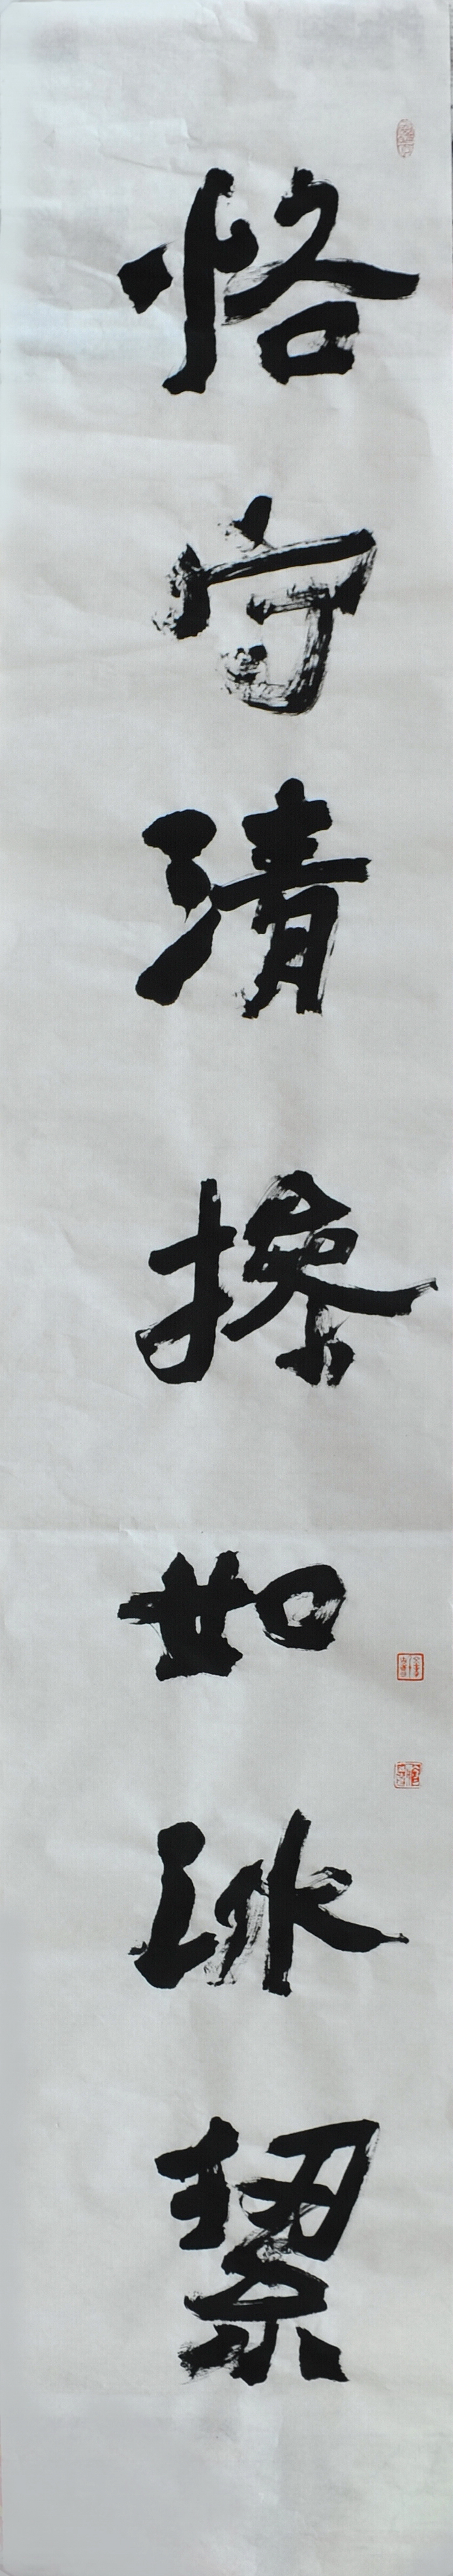 恪守清操如冰絜